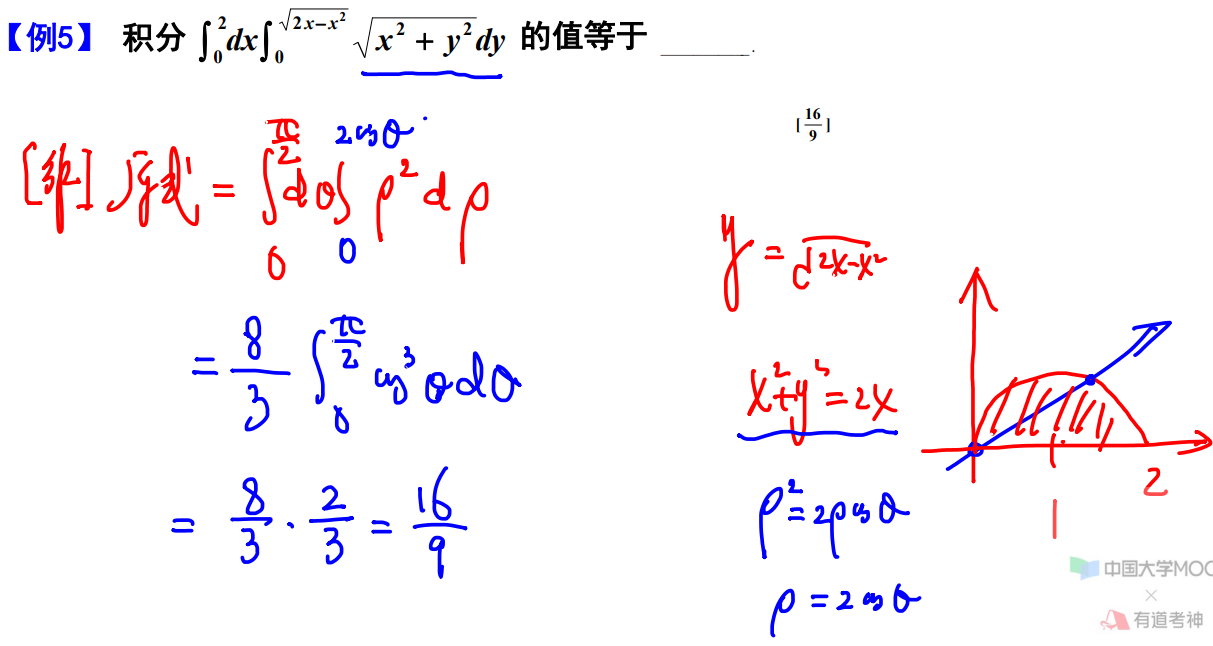 【例5】 积分 $\int_0^2 dx \int_0^{\sqrt{2x-x^2}} \sqrt{x^2+y^2}dy$ 的值等于 ________.
[$\frac{16}{9}$]
[解] 原式 = $\int_0^{\frac{\pi}{2}} d\theta \int_0^{2\cos\theta} \rho^2 d\rho$
= $\frac{8}{3} \int_0^{\frac{\pi}{2}} \cos^3\theta d\theta$
= $\frac{8}{3} \cdot \frac{2}{3} = \frac{16}{9}$
$y = \sqrt{2x-x^2}$
$x^2+y^2=2x$
$\rho^2=2\rho\cos\theta$
$\rho=2\cos\theta$
1
2
中国大学MOC
×
有道考神